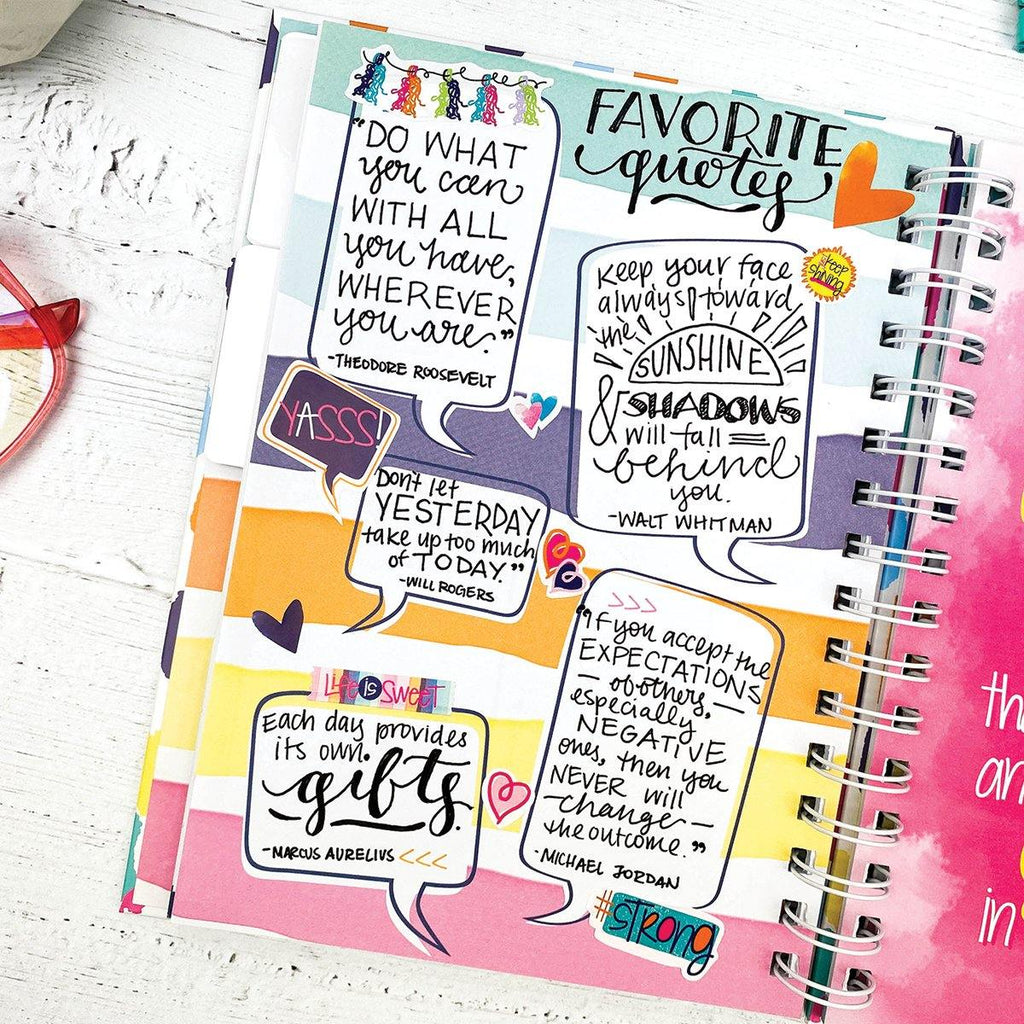 FAVORITE
quotes
"DO WHAT
you can
WITH ALL
you have,
WHEREVER
you are."
-THEODORE ROOSEVELT
keep your face
always toward
the
SUNSHINE
& SHADOWS
will fall
behind
you.
-WALT WHITMAN
keep
shining
YASSS!
Don't let
YESTERDAY
take up too much
of TODAY."
-WILL ROGERS
>>>
"If you accept the
EXPECTATIONS
— of others, —
especially
NEGATIVE
ones, then you
NEVER will
— change —
the outcome."
-MICHAEL JORDAN
#STRONG
Life is SWEET
Each day provides
its own
gifts.
-MARCUS AURELIUS <<<
in